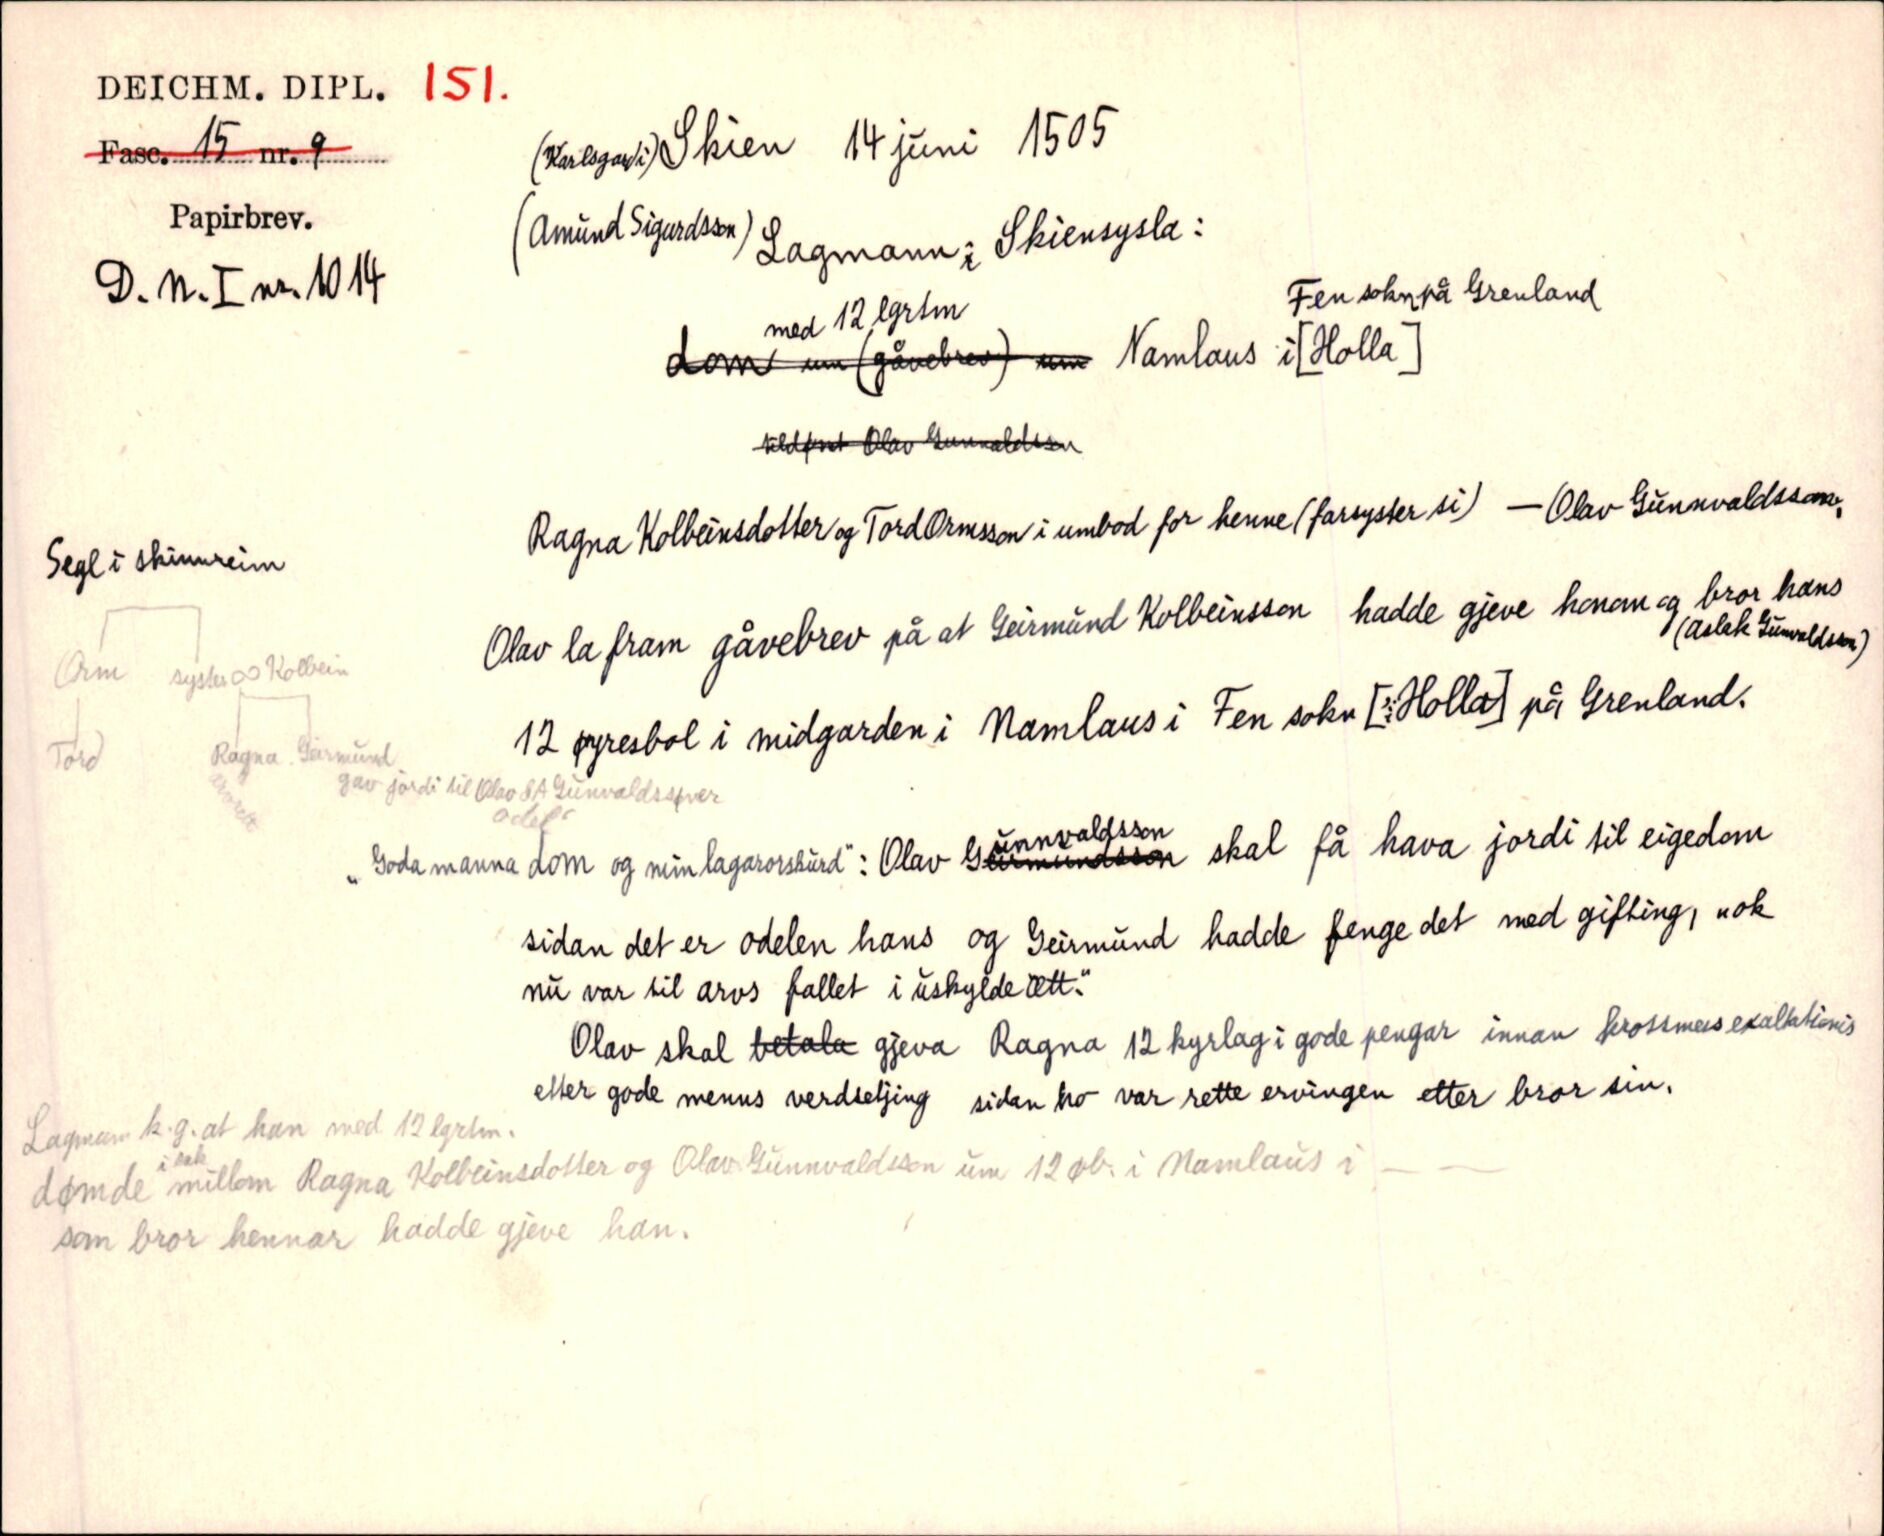 DEICHM. DIPL. 151.
Fasc. 15 nr. 9
Papirbrev.
D.N. I nr. 1014
(Karlsgard i) Skien 14 juni 1505
(Amund Sigurdsson) Lagmann i Skiensysla:
Fen sokn på Grenland
med 12 lgrtm
dom um (gåvebrev) um Namlaus i [Holla]
tildømt Olav Gunnvaldsson
Ragna Kolbeinsdotter og Tord Ormsson i umbod for henne (farsyster si) — Olav Gunnvaldsson.
Segl i skinnreim
Olav la fram gåvebrev på at Geirmund Kolbeinsson hadde gjeve honom og bror hans
(Aslak Gunvaldsson)
12 øyresbol i midgarden i Namlaus i Fen sokn [ɔ: Holla] på Grenland.
Orm syster ∞ Kolbein
Tord Ragna Geirmund
gav jordi til Olav & A Gunvaldssøner
odel
unnvaldsson
„Goda manna dom og min lagarorskurd": Olav Geirmundsson skal få hava jordi til eigedom
sidan det er odelen hans og Geirmund hadde fenge det med gifting, „ok
nu var til arvs fallet i uskylde ætt."
Olav skal betala gjeva Ragna 12 kyrlag i gode pengar innan krossmess exaltationis
etter gode menns verdsetjing sidan ho var rette ervingen etter bror sin.
Lagmann k.g. at han med 12 lgrtm.
i sak
dømde millom Ragna Kolbeinsdotter og Olav Gunnvaldsson um 12 øb. i Namlaus i — —
som bror hennar hadde gjeve han.